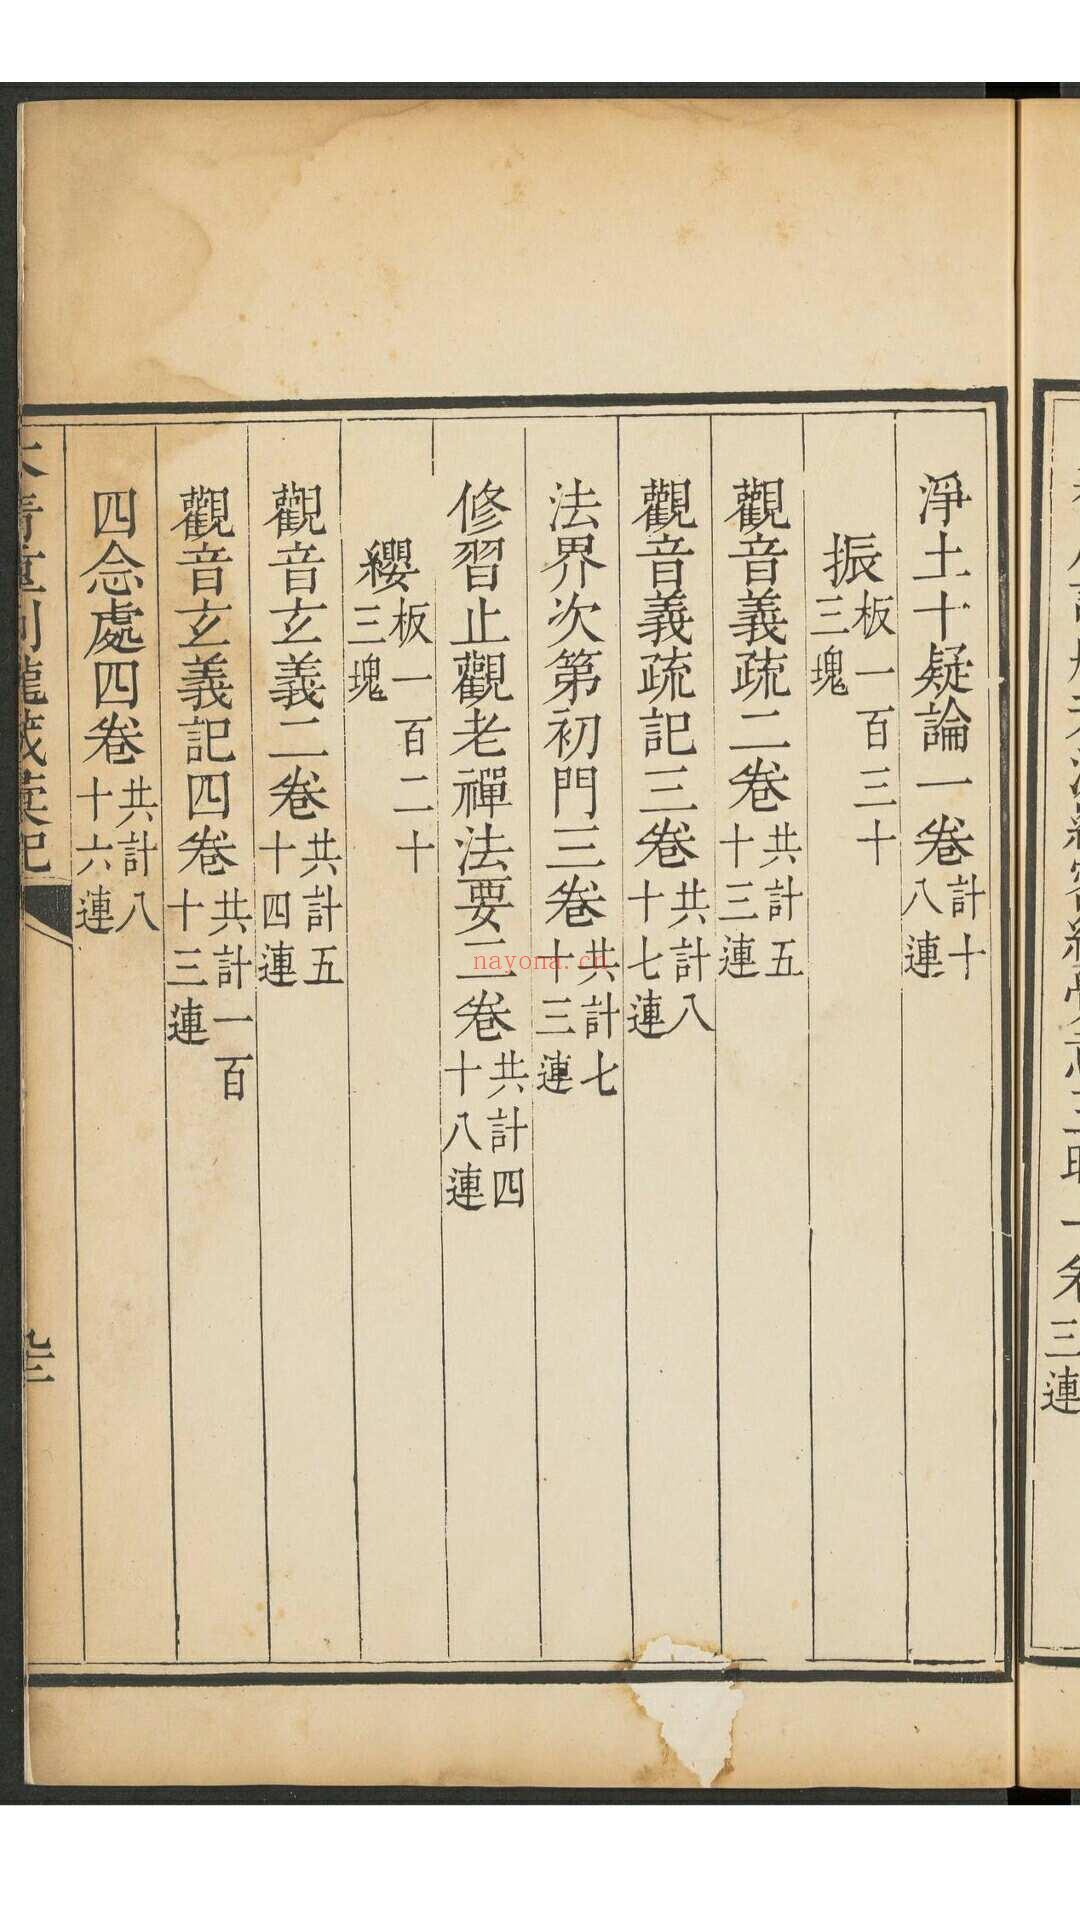 淨土十疑論一卷計十八連
振板一百三十三塊
觀音義疏二卷共計五十三連
觀音義疏記三卷共計八十七連
法界次第初門三卷共計七十三連
修習止觀老禪法要二卷共計四十八連
纓板一百二十三塊
觀音玄義二卷共計五十四連
觀音玄義記四卷共計一百十三連
四念處四卷共計八十六連
nayona.cn